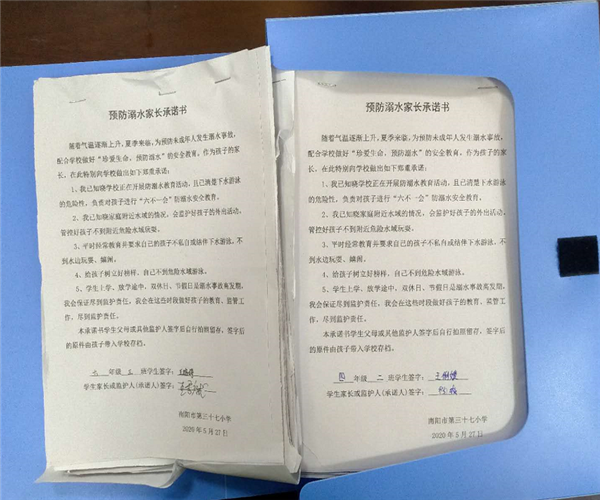 预防溺水家长承诺书
随着气温逐渐上升,夏季来临,为预防未成年人发生溺水事故,
配合学校做好“珍爱生命,预防溺水”的安全教育。作为孩子的家
长,在此特别向学校做出如下郑重承诺:
1、我已知晓学校正在开展防溺水教育活动,且已清楚下水游泳
的危险性,负责对孩子进行“六不一会”防溺水安全教育。
2、我已知晓家庭附近水域的情况,会监护好孩子的外出活动,
管控好孩子不到附近危险水域玩耍。
3、平时经常教育并要求自己的孩子不私自或结伴下水游泳,不
到水边玩耍、嬉闹。
4、给孩子树立好榜样,自己不到危险水域游泳。
5、学生上学、放学途中、双休日、节假日是溺水事故高发期,
我会保证尽到监护责任,我会在这些时段做好孩子的教育、监管
工作,尽到监护责任。
本承诺书学生父母或其他监护人签字后自行拍照留存,签字后
的原件由孩子带入学校存档。
六 年级 三 班学生签字:
学生家长或监护人(承诺人)签字:
南阳市第三十七小学
2020 年 5 月 27 日
预防溺水家长承诺书
随着气温逐渐上升,夏季来临,为预防未成年人发生溺水事故,
配合学校做好“珍爱生命,预防溺水”的安全教育。作为孩子的家
长,在此特别向学校做出如下郑重承诺:
1、我已知晓学校正在开展防溺水教育活动,且已清楚下水游泳
的危险性,负责对孩子进行“六不一会”防溺水安全教育。
2、我已知晓家庭附近水域的情况,会监护好孩子的外出活动,
管控好孩子不到附近危险水域玩耍。
3、平时经常教育并要求自己的孩子不私自或结伴下水游泳,不
到水边玩耍、嬉闹。
4、给孩子树立好榜样,自己不到危险水域游泳。
5、学生上学、放学途中、双休日、节假日是溺水事故高发期,
我会保证尽到监护责任,我会在这些时段做好孩子的教育、监管工
作,尽到监护责任。
本承诺书学生父母或其他监护人签字后自行拍照留存,签字后
的原件由孩子带入学校存档。
四 年级 二 班学生签字:
学生家长或监护人(承诺人)签字:
南阳市第三十七小学
2020 年 5 月 27 日